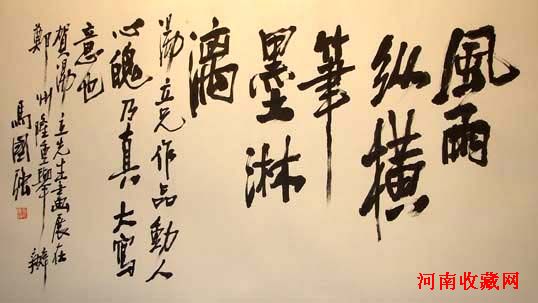 風雨
纵橫
筆
墨淋
漓
湯立兄作品動人
心魄乃真大寫
意也
賀湯立先生画展在
鄭州隆重舉辦
馬國强
河南收藏网